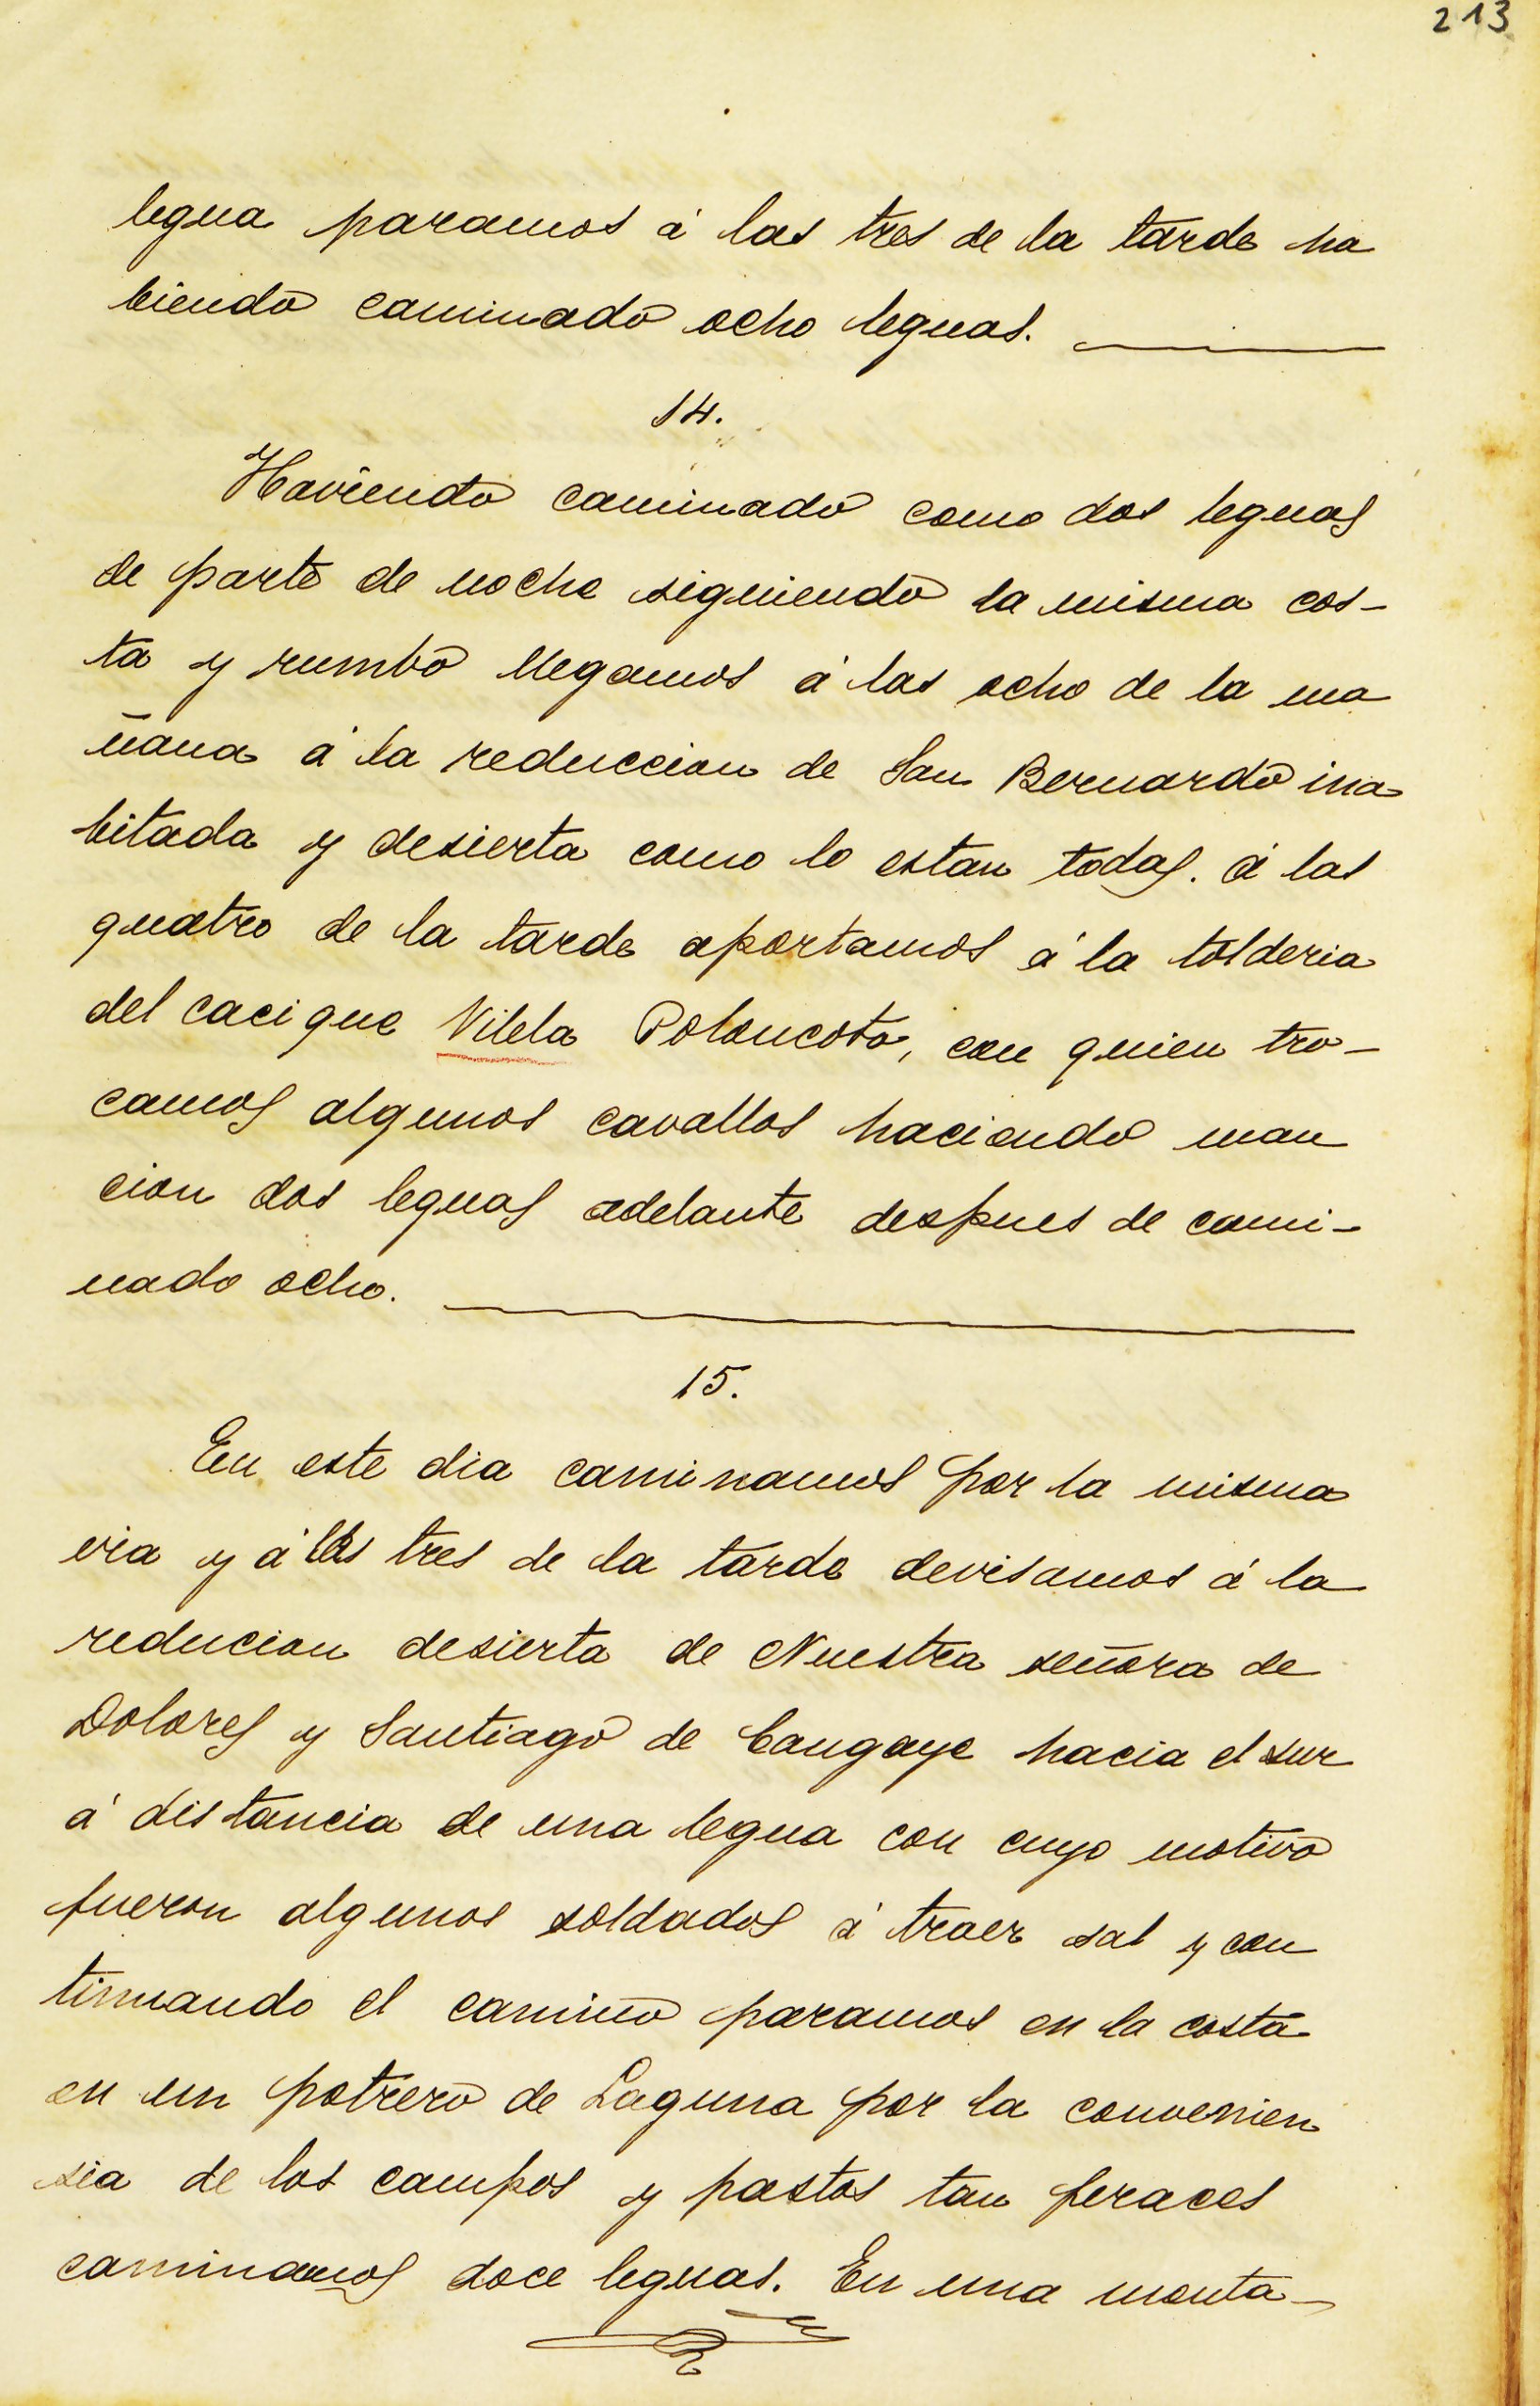 213
legua paramos á las tres de la tarde ha
biendo caminado ocho leguas.
14.
Haviendo caminado como dos leguas
de parte de noche siguiendo la misma cos-
ta y rumbo llegamos á las ocho de la ma
ñana á la reduccion de San Bernardo ina
bitada y desierta como lo estan todas. á las
quatro de la tarde aportamos á la tolderia
del cacique Vilela Poloncoto, con quien tro-
camos algunos cavallos haciendo man
cion dos leguas adelante despues de cami-
nado ocho.
15.
En este dia caminamos por la misma
via y á las tres de la tarde devisamos á la
reducion desierta de Nuestra señora de
Dolores y Santiago de Cangaye hacia el sur
á distancia de una legua con cuyo motivo
fueron algunos soldados á traer sal y con
tinuando el camino paramos en la costa
en un potrero de Laguna por la convenien
sia de los campos y pastos tan feraces
caminamos doce leguas. En una monta-